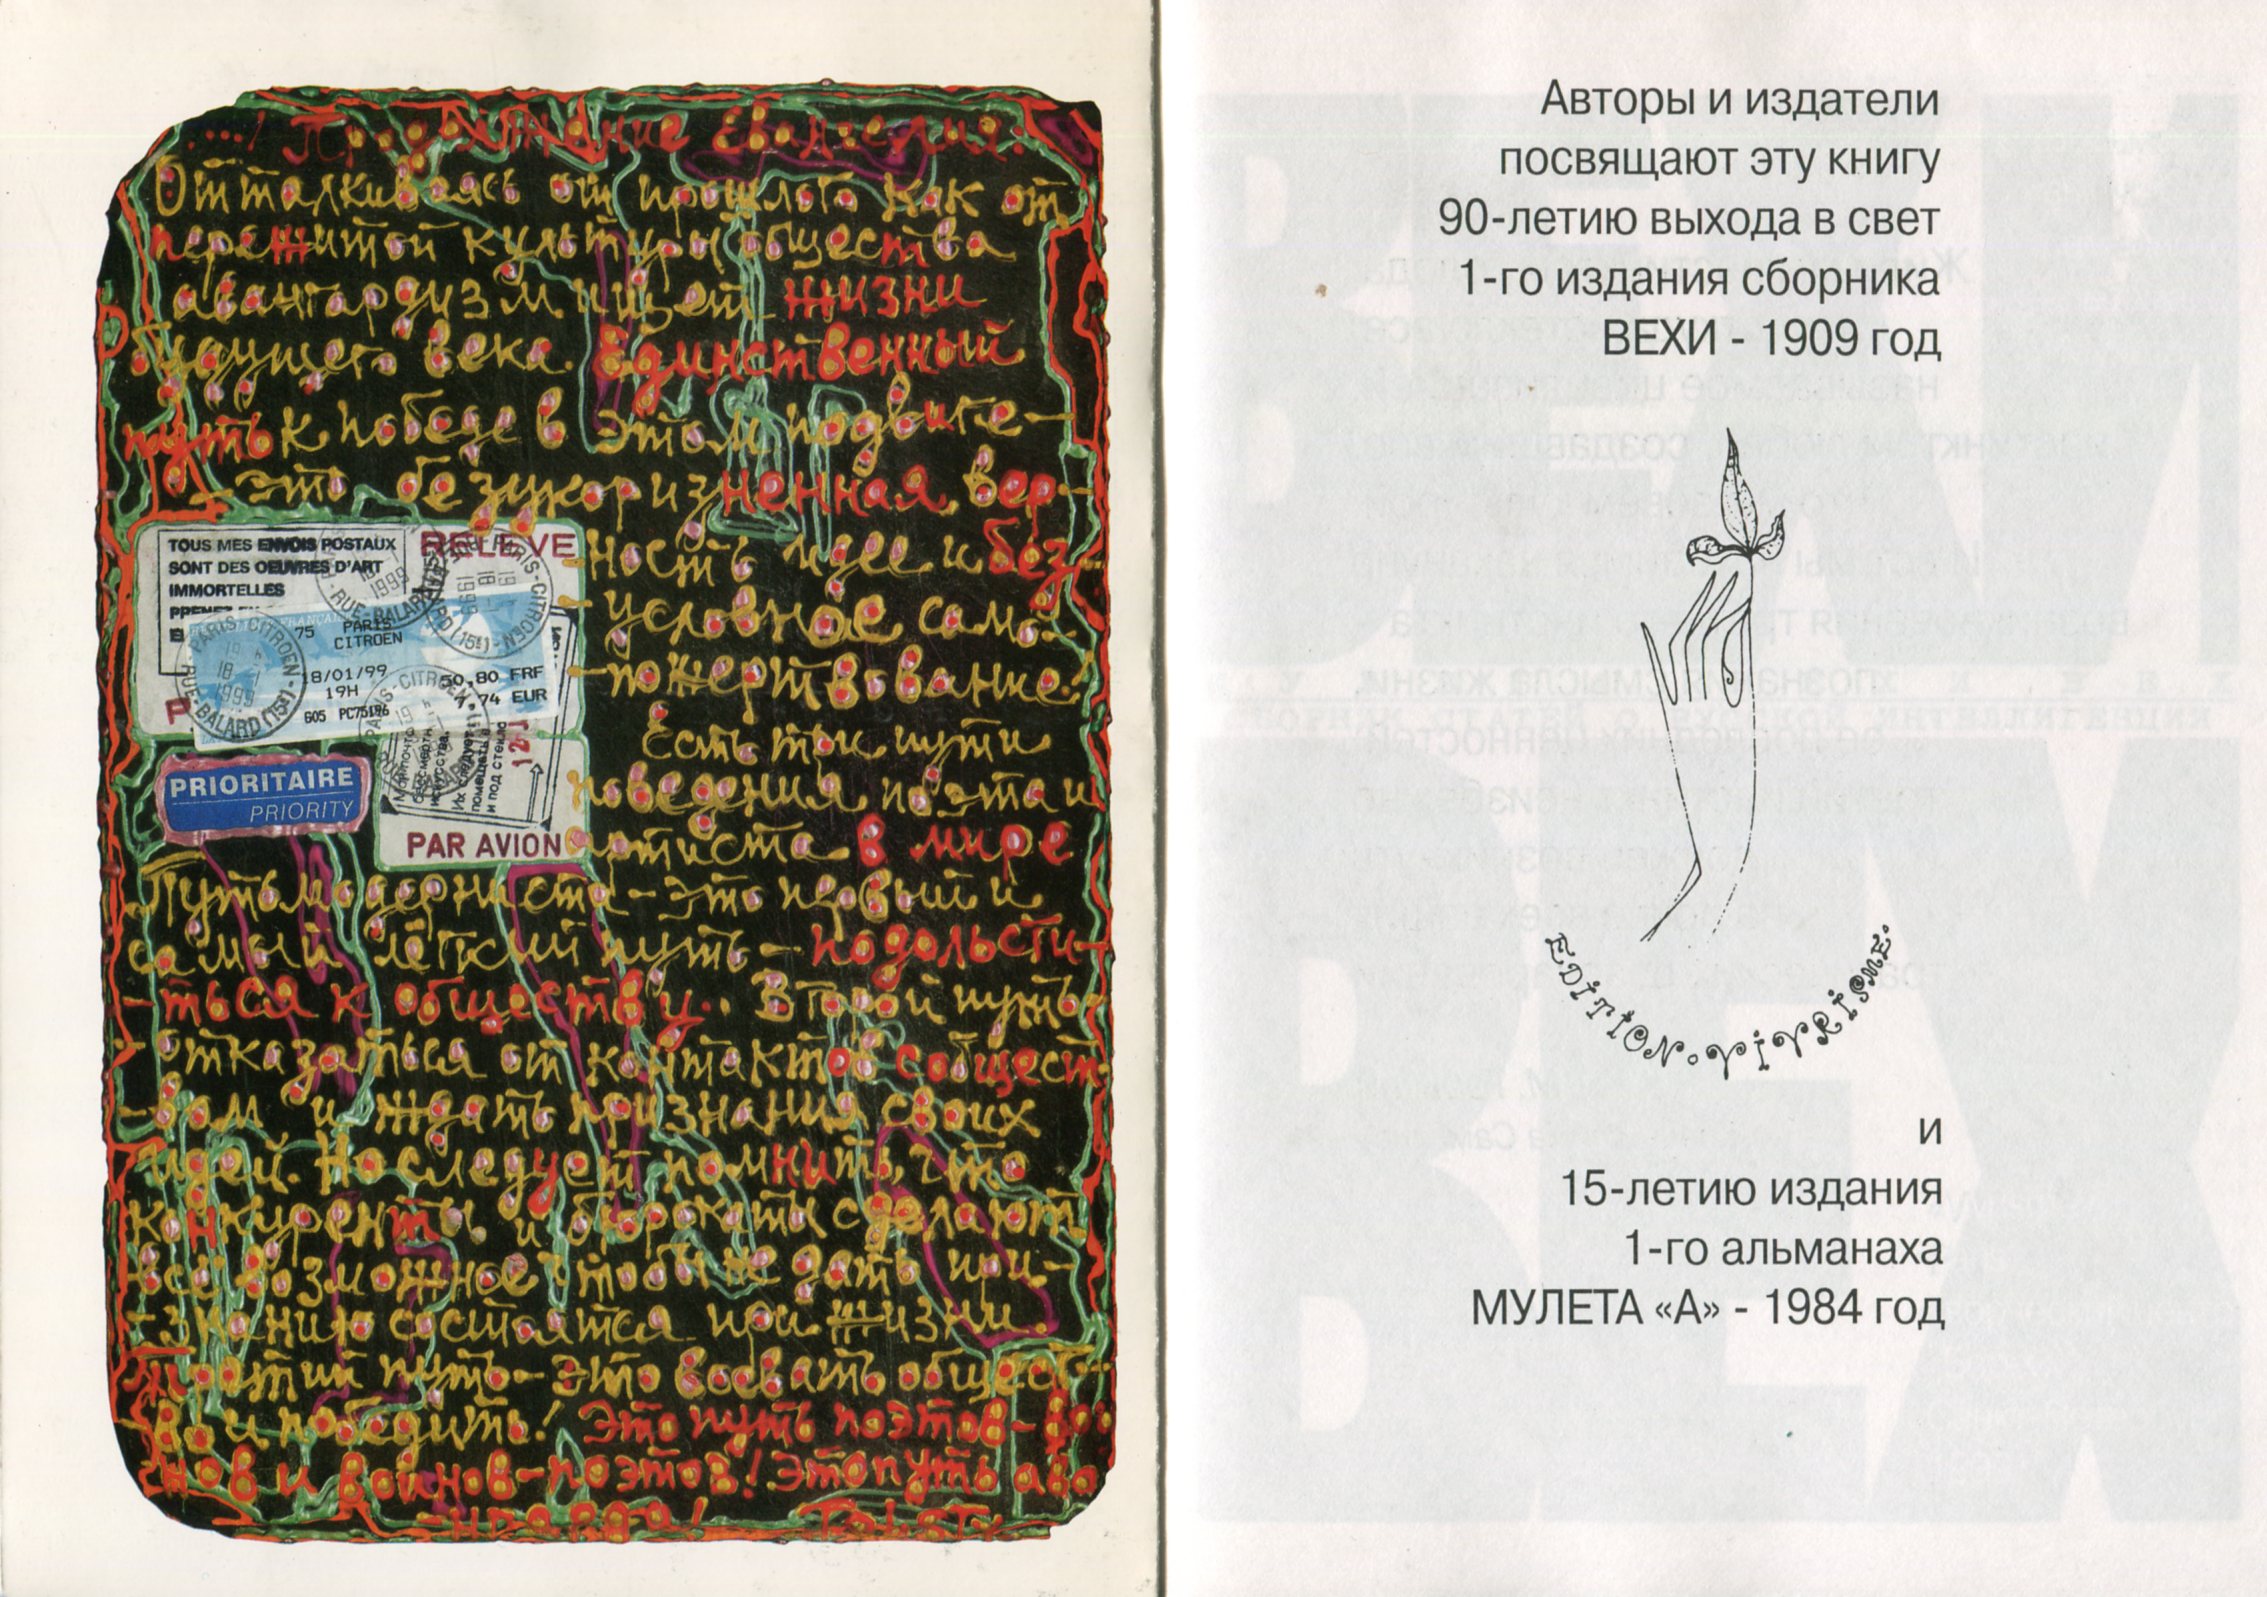 ...! Продолжение Евангелия:
Отталкиваясь от прошлого как от
пережитой культуры общества
авангардизм ищет жизни
будущего века. Единственный
путь к победе в этом подвиге –
– это безукоризненная вер-
ность идее и без-
условное само-
-пожертвование!
Есть три пути
поведения поэта и
артиста в мире
Путь модерниста – это первый и
самый лёгкий путь – подольсти-
-ться к обществу.. Второй путь
отказаться от контактов с общест-
-вом и ждать признания своих
идей. Но следует помнить, что
конкуренты и бюрократы сделают
всё возможное чтобы не дать при-
-знанию состоятся при жизни.
Третий путь – это воевать общест-
-во и победить! Это путь поэтов – вои
нов и воинов – поэтов! Это путь ава
-нгарда! Tolsty
TOUS MES ENVOIS POSTAUX
SONT DES OEUVRES D'ART
IMMORTELLES
RELEVE
75 PARIS
CITROEN
18/01/99
19H
605 PC75196
50,80 FRF
7,74 EUR
PARIS-CITROEN
RUE-BALARD (15E)
18 1 1999
Мои почто
бессмертн
искусства.
Их следует
помещать в
и под стекло
PRIORITAIRE
PRIORITY
PAR AVION
Авторы и издатели
посвящают эту книгу
90-летию выхода в свет
1-го издания сборника
ВЕХИ - 1909 год
EDITION VIVRISME
и
15-летию издания
1-го альманаха
МУЛЕТА «А» - 1984 год